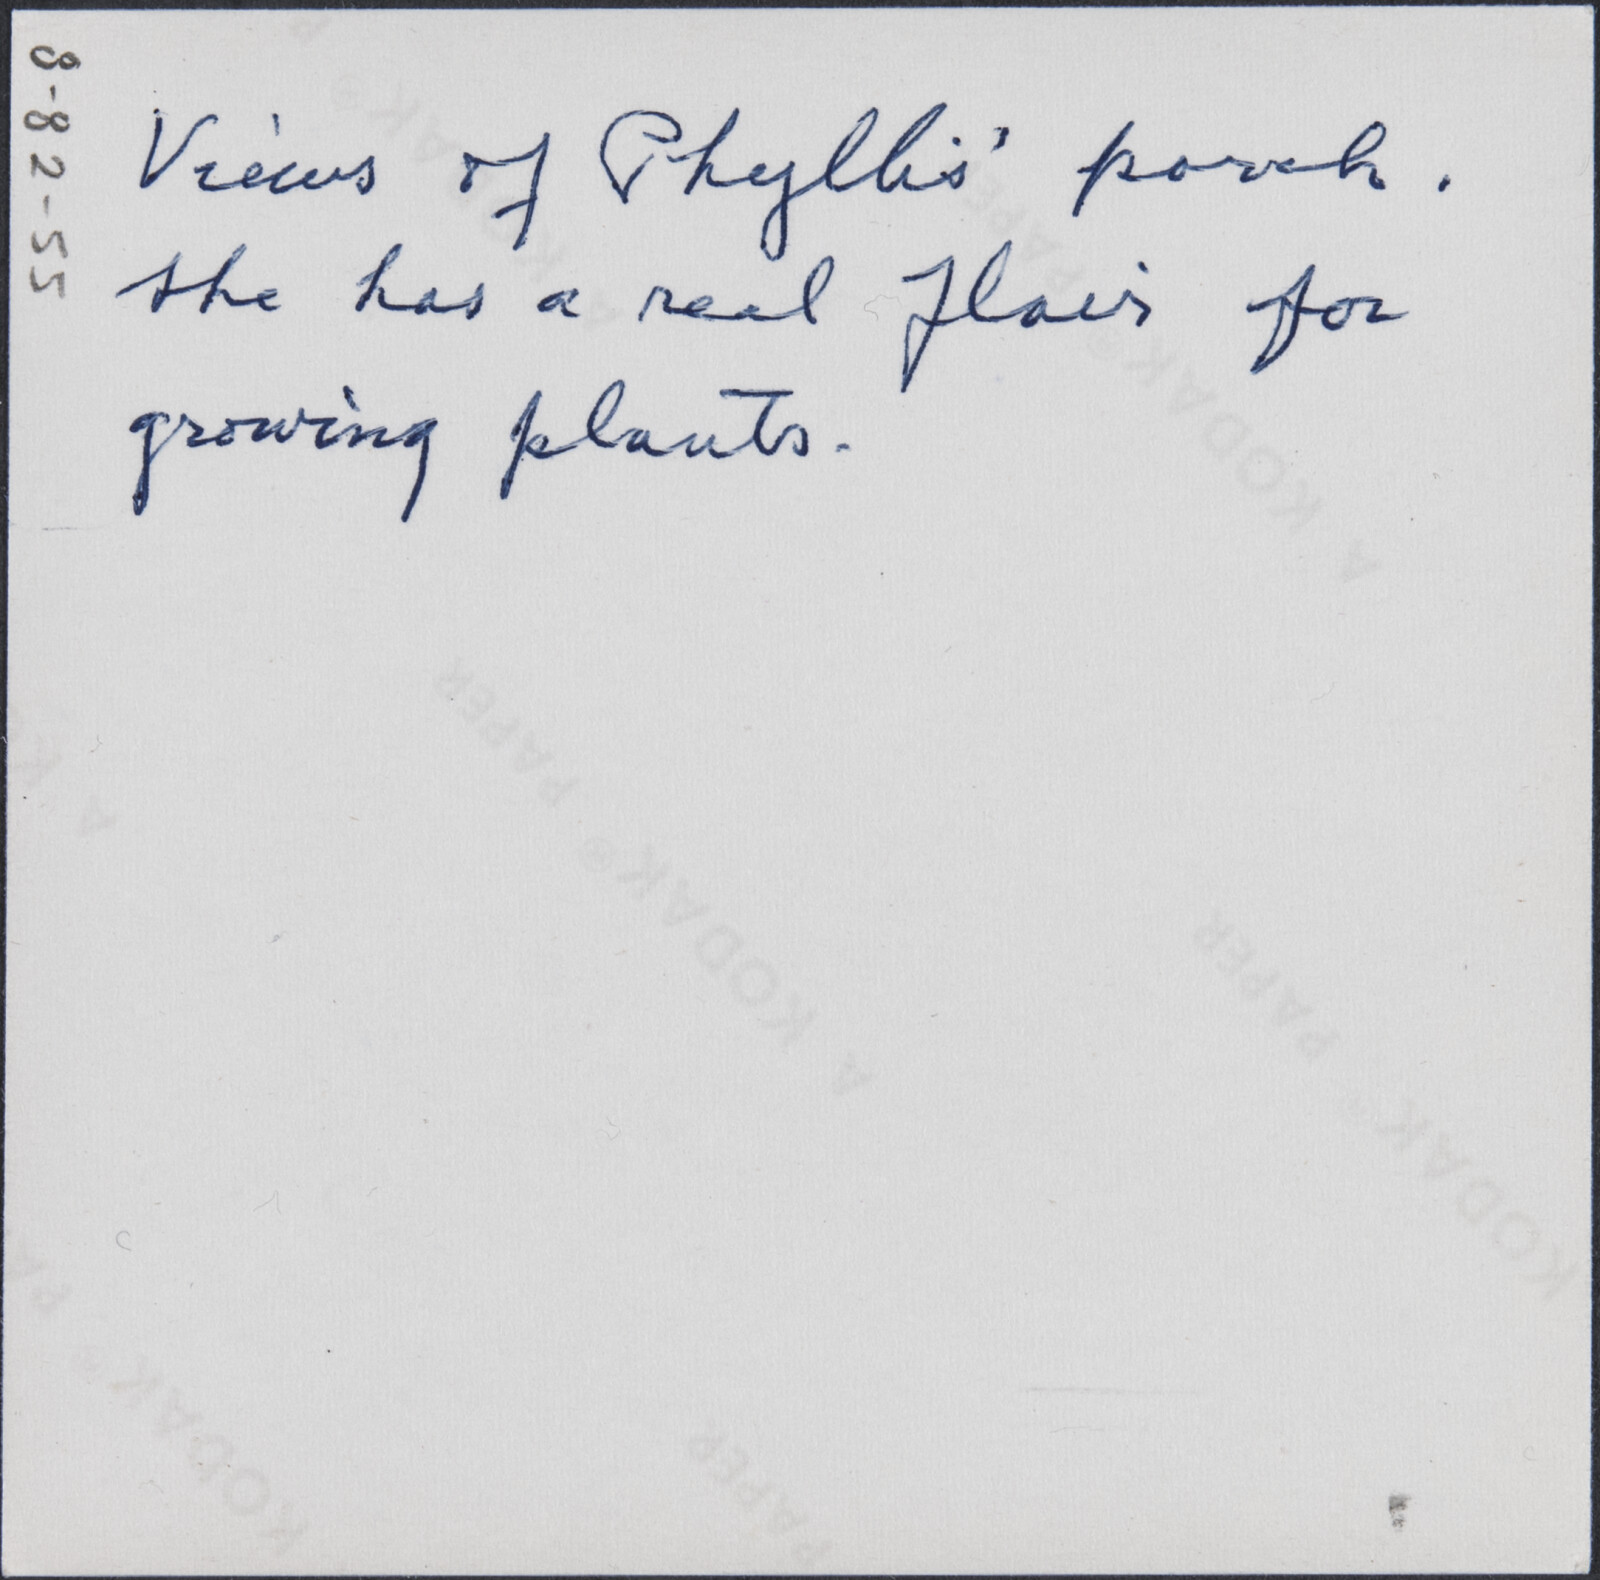 8-82-55
Views of Phyllis' porch.
She has a real flair for
growing plants.
A KODAK® PAPER
A KODAK® PAPER
KODAK® PAPER
KODAK®
PAPER